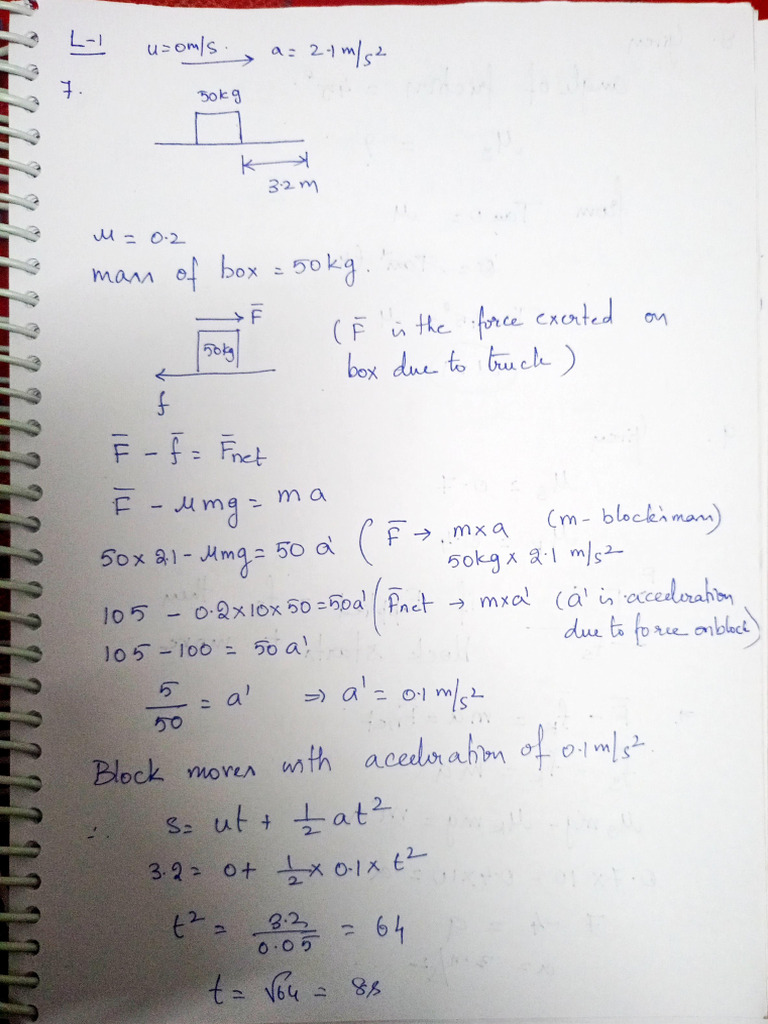 L-1 u=0m/s. a= 2.1m/s²
7.
50kg
3.2m
μ = 0.2
mass of box = 50kg.
F̄
50kg
(F̄ is the force exerted on
box due to truck)
f
F̄ - f̄ = F̄net
F̄ - μmg = ma
50×2.1 - μmg = 50 a' ( F̄ → m×a (m- block's mass)
50kg × 2.1 m/s²
105 - 0.2×10×50 = 50a' ( F̄net → m×a' (a' is acceleration
due to force on block)
105-100 = 50 a'
5/50 = a' ⇒ a' = 0.1m/s²
Block moves with acceleration of 0.1m/s².
∴ s= ut + 1/2 at²
3.2 = 0+ 1/2 × 0.1 × t²
t² = 3.2/0.05 = 64
t = √64 = 8s